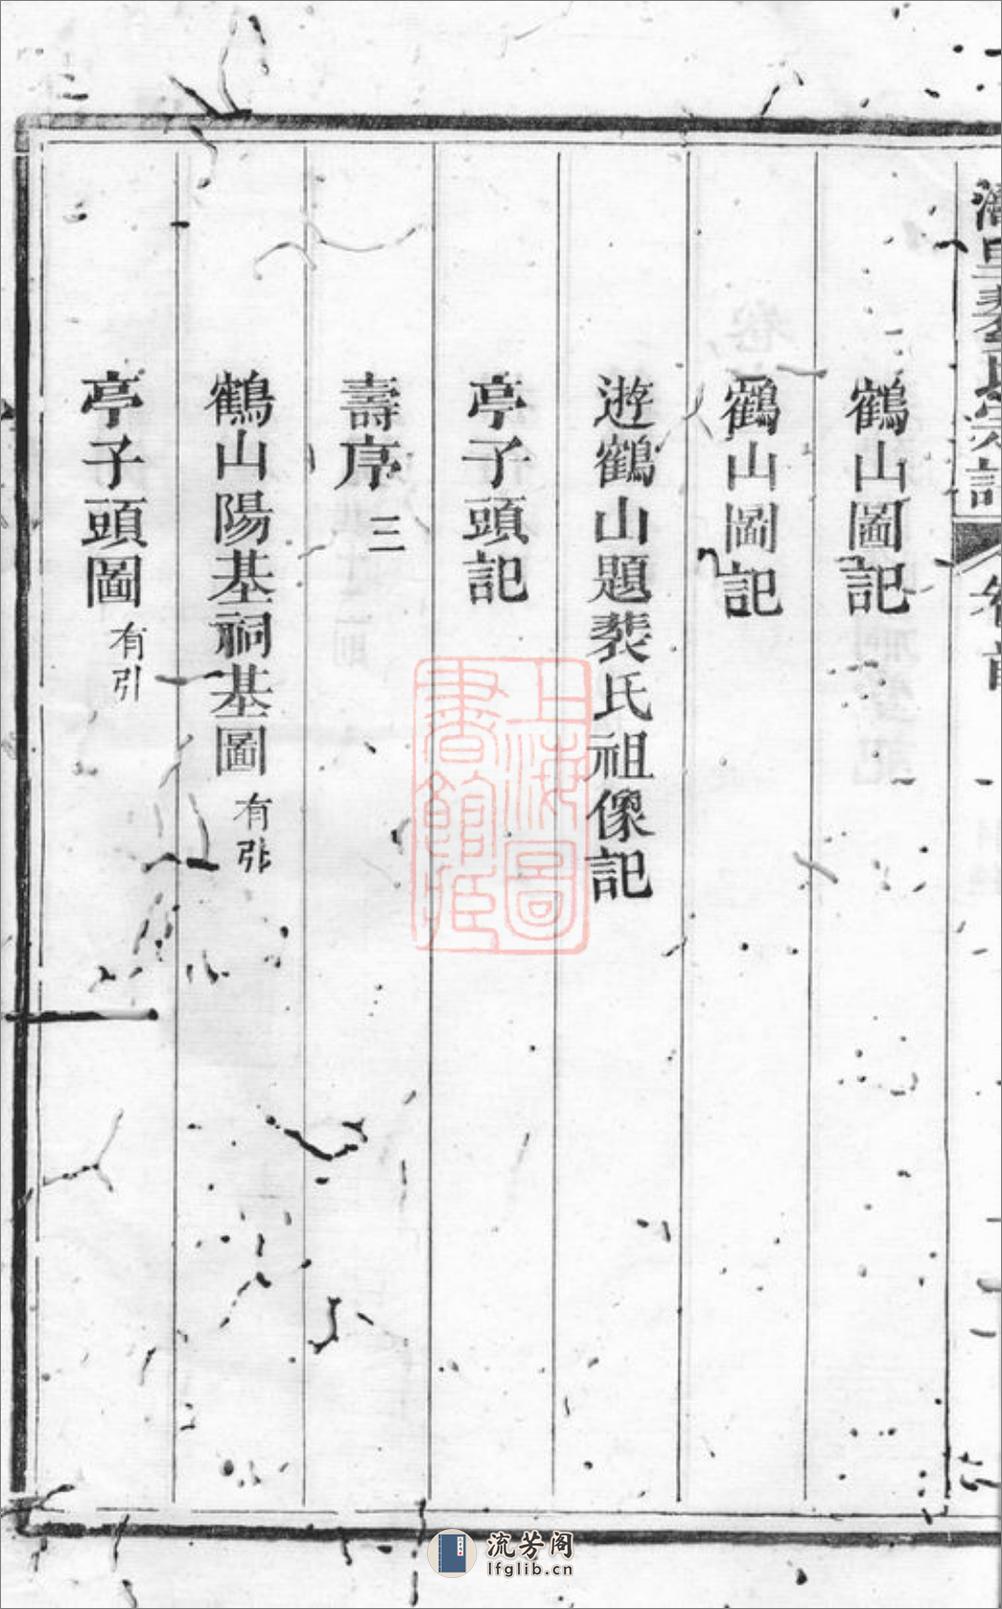 裘氏宗譜
卷首
鶴山圖記
鶴山圖記
遊鶴山題裘氏祖像記
亭子頭記
壽序 三
鶴山陽基祠基圖 有引
亭子頭圖 有引
上海圖書館藏
流芳阁
lfglib.cn